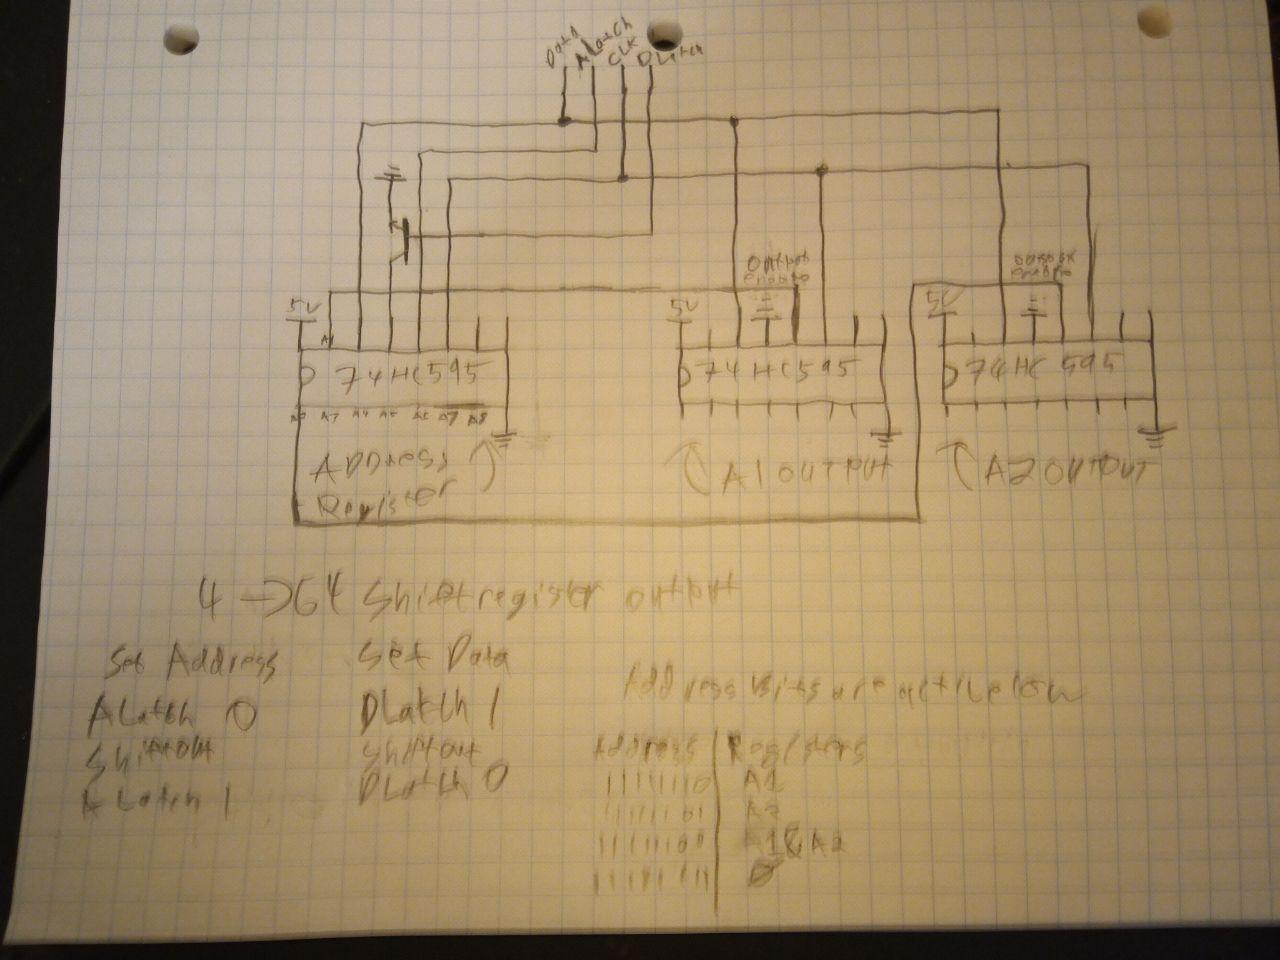 Data ALatch CLK DLatch
output enable
output enable
5V
5V
5V
A1
74HC595
74HC595
74HC 595
Address Register
A1 output
A2 output
4 → 64 Shift register output
Set Address
ALatch 0
Shiftout
ALatch 1
Set Data
DLatch 1
Shiftout
DLatch 0
Address bits are active low
Address | Registers
11111110 A1
11111101 A2
11111100 A1&A2
11111111 Ø